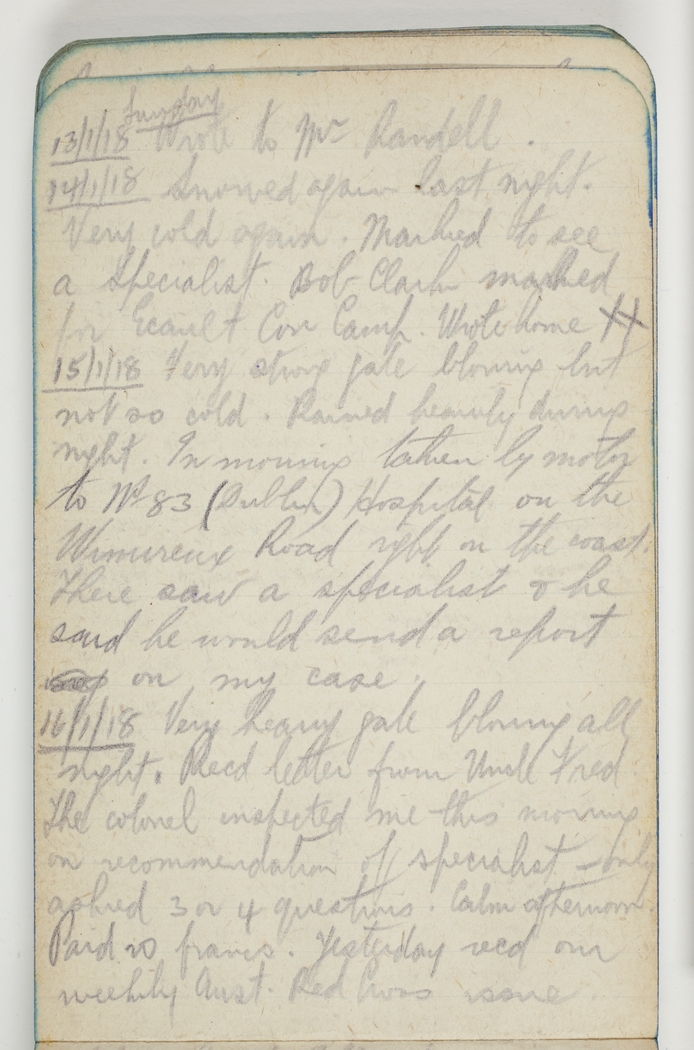 Sunday
13/1/18 Wrote to Mr Randell.
14/1/18 Snowed again last night.
Very cold again. Marked to see
a Specialist. Bob Clark marked
for Ecault Con Camp. Wrote home H
15/1/18 Very strong gale blowing but
not so cold. Rained heavily during
night. In morning taken by motor
to No 83 (Dublin) Hospital on the
Wimereux Road right on the coast.
There saw a specialist & he
said he would send a report
on my case.
16/1/18 Very heavy gale blowing all
night. Recd letter from Uncle Fred.
The colonel inspected me this morning
on recommendation of specialist - only
asked 3 or 4 questions. Calm afternoon.
Paid 10 francs. Yesterday recd our
weekly Aust. Red Cross issue.